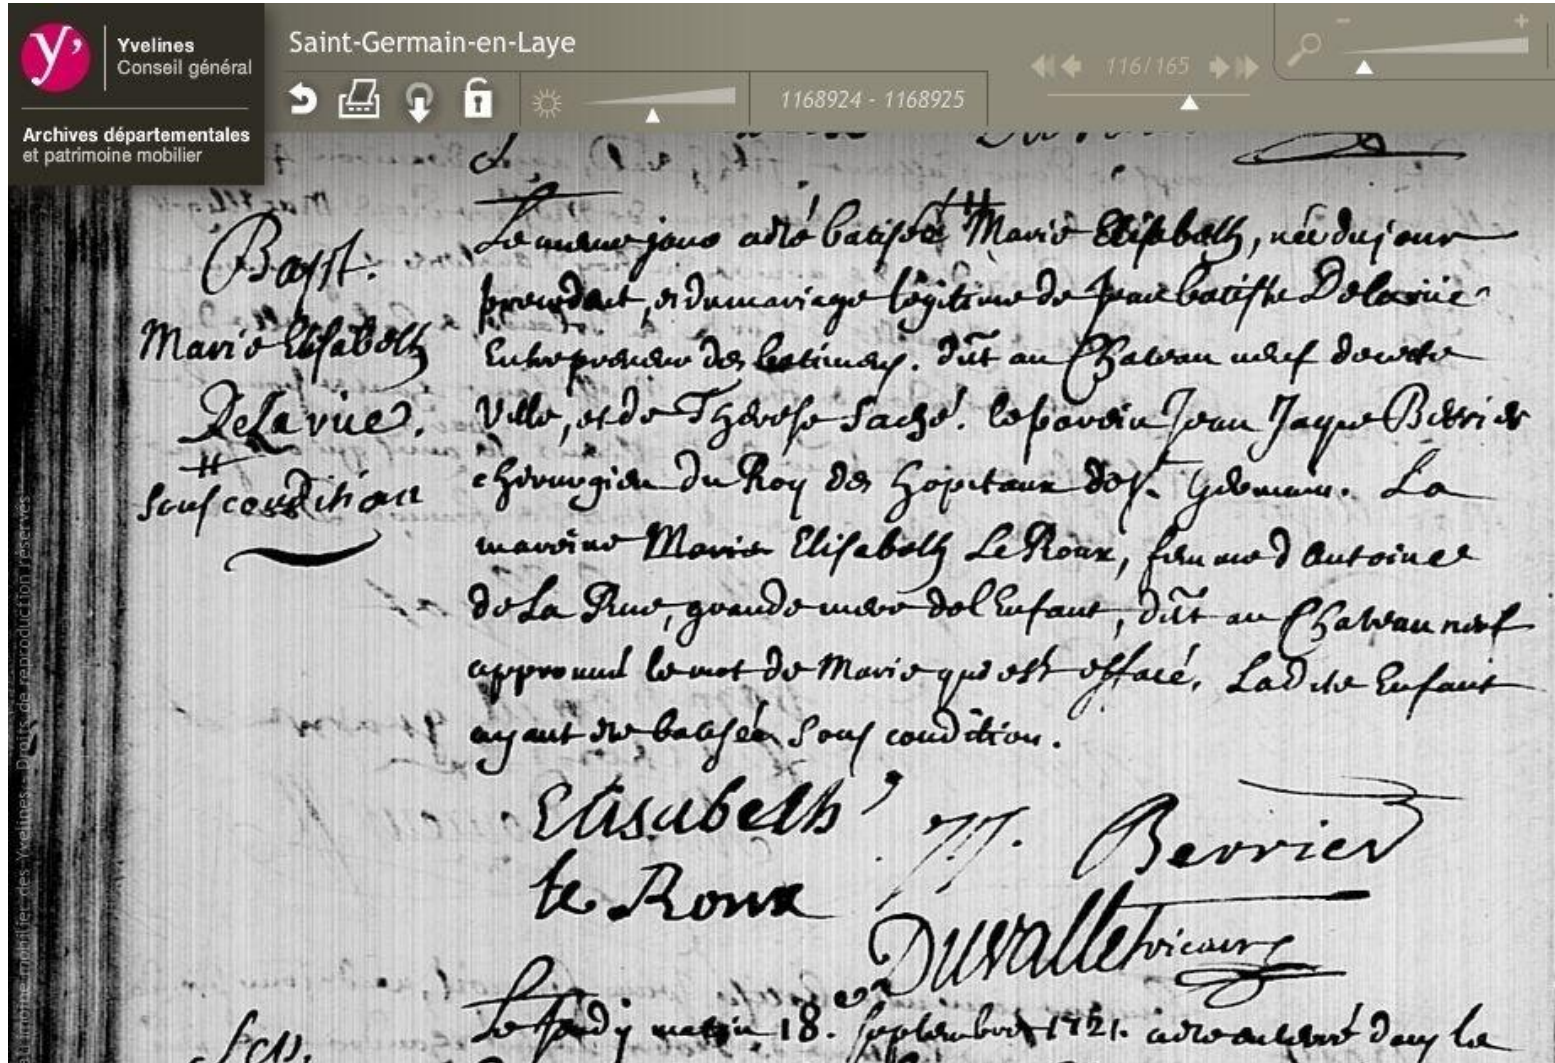 Yvelines
Conseil général
Archives départementales
et patrimoine mobilier
Saint-Germain-en-Laye
116/165
1168924 - 1168925
Bapt.
Marie Elisabeth
DeLarüe.
sous condition
Le meme jour a été batisée Marie Elisabeth, née du jour
precedent, et du mariage legitime de Jean batiste Delarüe
Entrepreneur des batimens. dmt au Chateau neuf de cette
Ville, et de Therese Saché. le parein Jean Jaque Berrier
chirurgien du Roy des hopitaux de St. Germain. La
mareine Marie Elisabeth Le Roux, femme d'Antoine
de La Rue, grande mere de l'Enfant, dmt au Chateau neuf
approuvé le mot de Marie qui est effacé. Ladite Enfant
ayant été batisée sous condition.
Elisabeth
le Roux
JJ. Berrier
Duvallet vicaire
Le jeudy matin 18. septembre 1721. a été enterré dans le
Sep.
moine mobilier des Yvelines. Droits de reproduction réservés